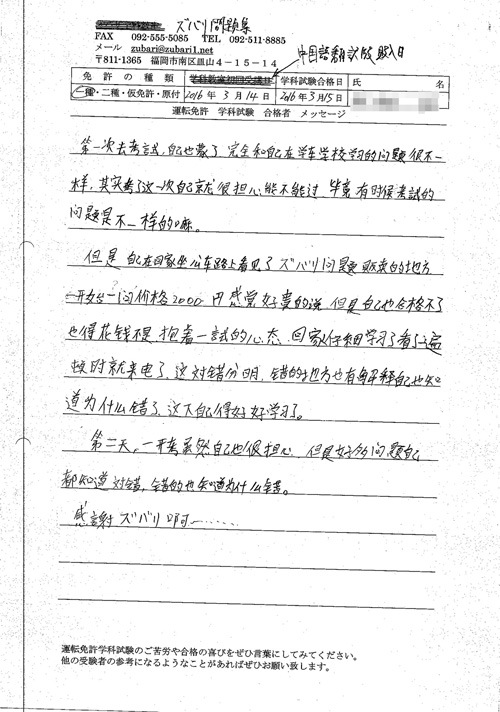 ズバリ問題集
FAX 092-555-5085 TEL 092-511-8885
メール zubari@zubari1.net
〒811-1365 福岡市南区皿山4-15-14
中国語翻訳版購入日
免許の種類 学科試験合格日 氏 名
一種・二種・仮免許・原付 2016年3月14日 2016年3月15日
運転免許 学科試験 合格者 メッセージ
第一次去考试,自己也蒙了 完全和自己在学车学校学习的问题很不一
样,其实考了这一次自己就很担心能不能过 毕竟有时候考试的
问题是不一样的嘛。
但是 自己在回家坐公车路上看见了 ズバリ问题 贩卖的地方
开始一问价格2000円感觉好贵的说 但是自己也合格不了
也得花钱不是 抱着一试的心态 回家仔细学习了看了3遍
按时就来电了 这对错分明 错的地方也有解释自己也知
道为什么错了 这下自己得好好学习了。
第二天,一开考虽然自己也很担心 但是好多问题自己
都知道对错,错的也知道为什么错。
感謝 ズバリ啊……
運転免許学科試験のご苦労や合格の喜びをぜひ言葉にしてみてください。
他の受験者の参考になるようなことがあればぜひお願い致します。